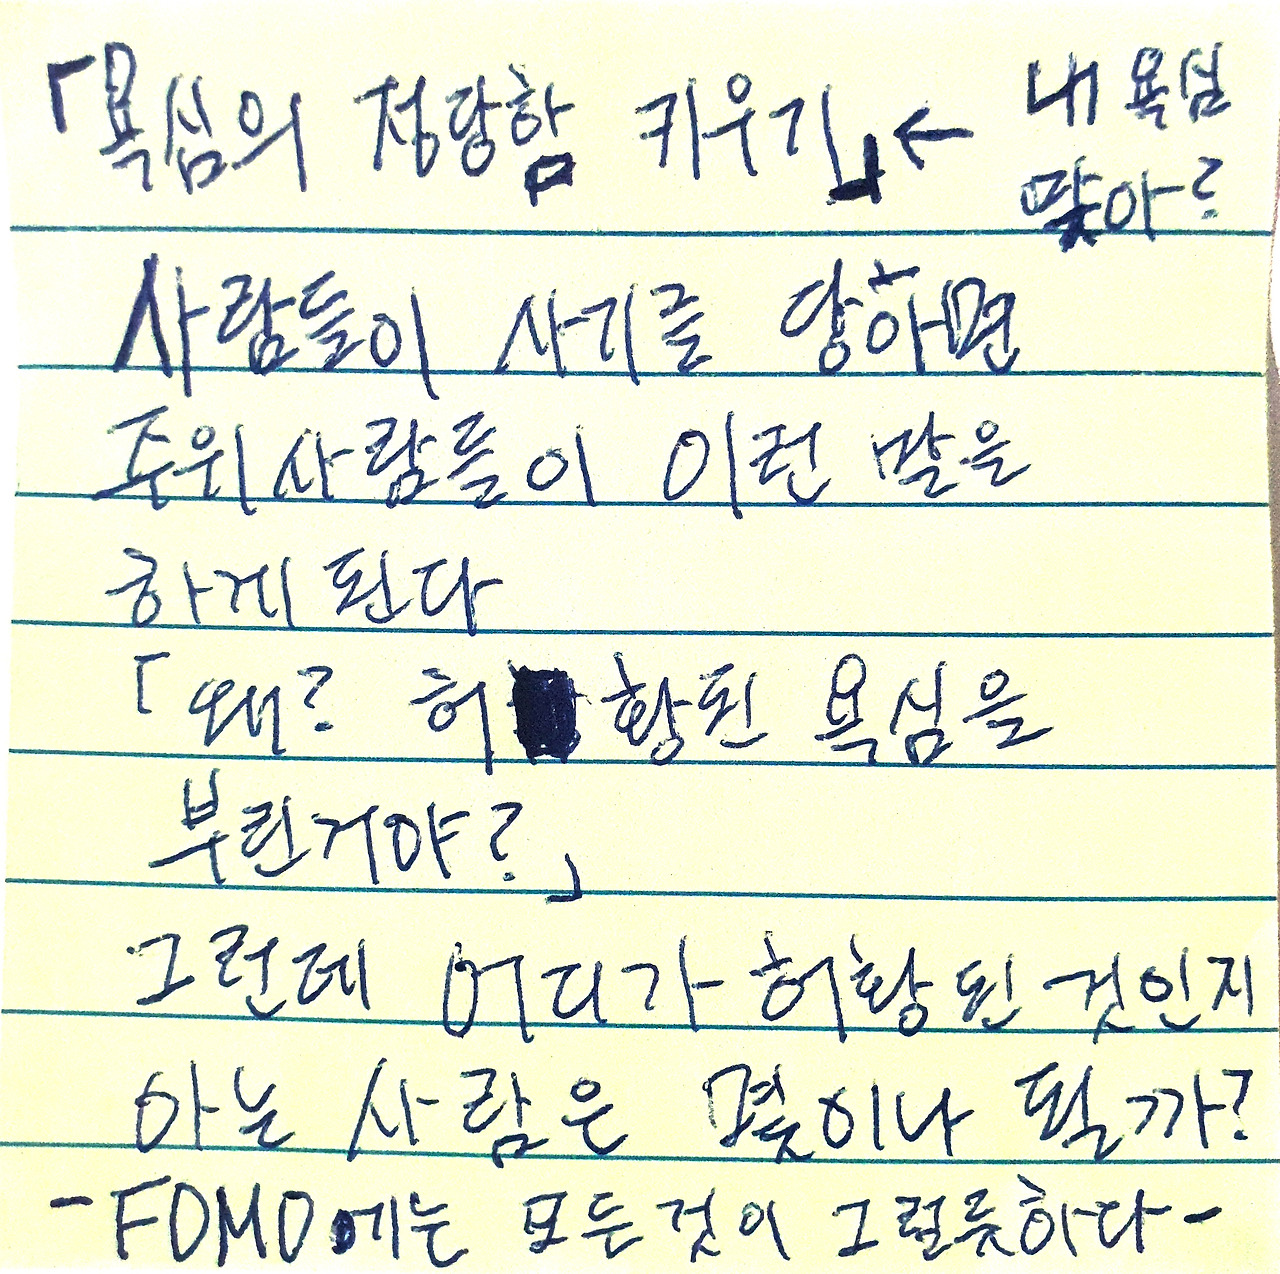 「욕심의 정당함 키우기」 ← 내 욕심
맞아?
사람들이 사기를 당하면
주위사람들이 이런 말을
하게 된다
「왜? 허황된 욕심을
부린거야?」
그런데 어디가 허황된 것인지
아는 사람은 몇이나 될까?
- FOMO에는 모든것이 그럴듯하다 -